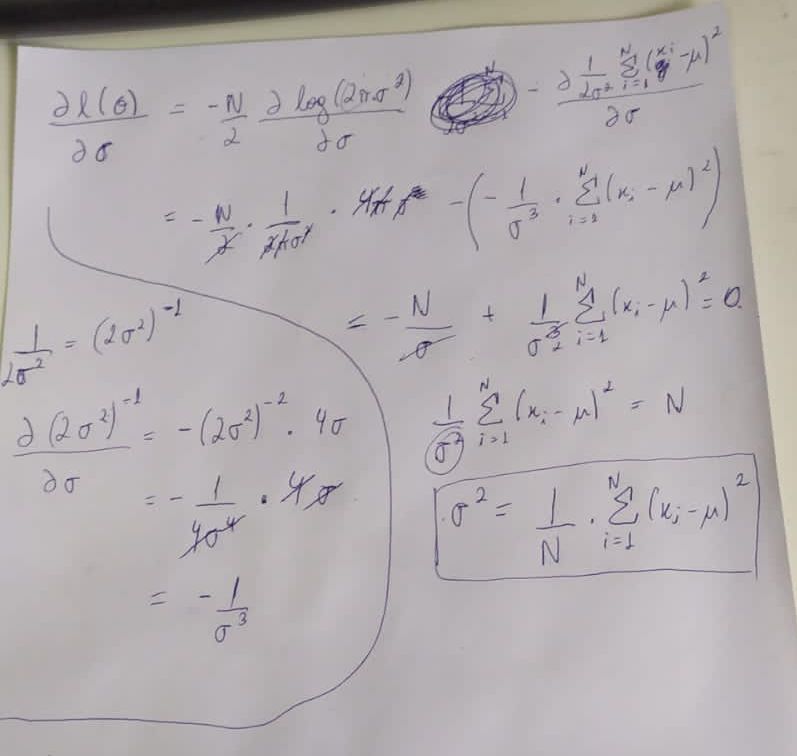 ∂l(θ)/∂σ = -N/2 ∂ log(2πσ²)/∂σ - ∂ 1/2σ² Σ_{i=1}^{N} (x_i - μ)²/∂σ
= - N/2 · 1/2πσ² · 4πσ - (- 1/σ³ · Σ_{i=1}^{N} (x_i - μ)²)
= - N/σ + 1/σ³ Σ_{i=1}^{N} (x_i - μ)² = 0
1/σ² Σ_{i=1}^{N} (x_i - μ)² = N
σ² = 1/N · Σ_{i=1}^{N} (x_i - μ)²
1/2σ² = (2σ²)⁻¹
∂(2σ²)⁻¹/∂σ = -(2σ²)⁻² · 4σ
= - 1/4σ⁴ · 4σ
= - 1/σ³